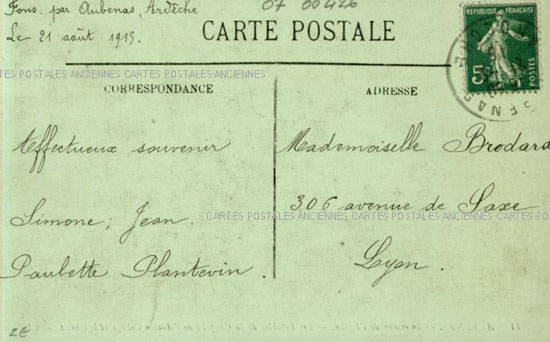 Fons. par Aubenas, Ardèche
Le 21 août 1915.
07 00426
CARTE POSTALE
REPUBLIQUE FRANÇAISE
5c
POSTES
CARTES POSTALES ANCIENNES CARTES POSTALES ANCIENNES
CORRESPONDANCE
ADRESSE
Affectueux souvenir
Simone, Jean.
Paulette Plantevin.
Mademoiselle Brodard
306 avenue de Saxe
CARTES POSTALES ANCIENNES CARTES POSTALES ANCIENNES
Lyon.
2€